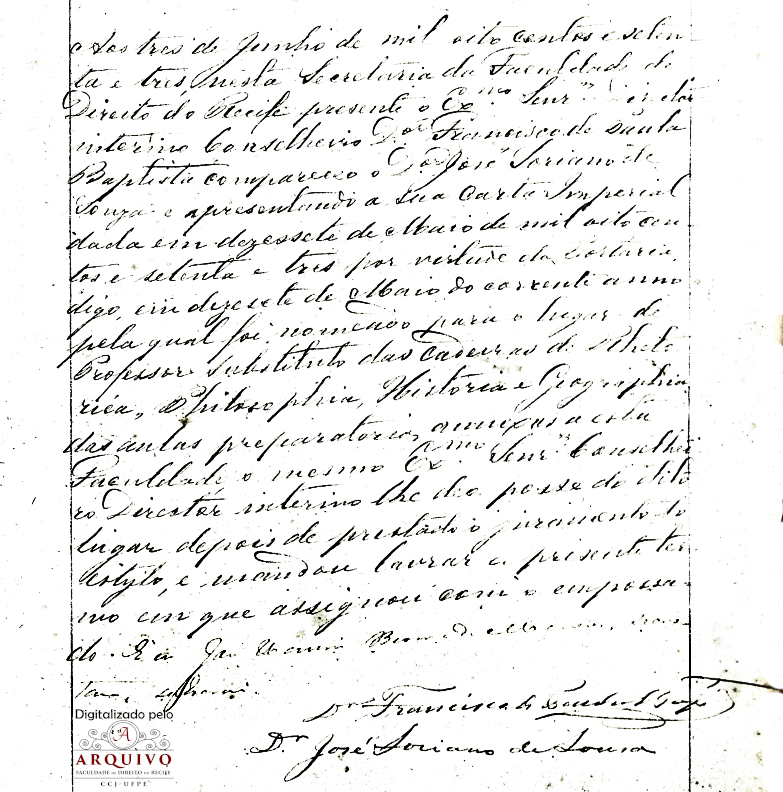 Aos tres de Junho de mil oito centos e seten-
ta e tres, nesta Secretaria da Faculdade de
Direito do Recife presente o Exmo. Senr. Director
interino Conselheiro Dor. Francisco de Paula
Baptista compareceo o Dor. José Soriano de
Souza e apresentando a sua Carta Imperial
dada em dezessete de Maio de mil oito cen-
tos e setenta e tres por virtude da Portaria,
digo, em dezesete de Maio do corrente anno
pela qual foi nomeado para o lugar de
Professor substituto das cadeiras de Rheto-
rica, Philosophia, Historia e Geographia
das aulas preparatorias annexas a esta
Faculdade o mesmo Exmo. Senr. Conselhei-
ro Director interino lhe deo posse do dito
lugar depois de prestado o juramento do
estylo, e mandou lavrar o presente ter-
mo em que assignou com o empossa-
do. Eu
Dr. Francisco de Paula Baptista
Dr. José Soriano de Souza
Digitalizado pelo
A
ARQUIVO
FACULDADE DE DIREITO DO RECIFE
CCJ-UFPE